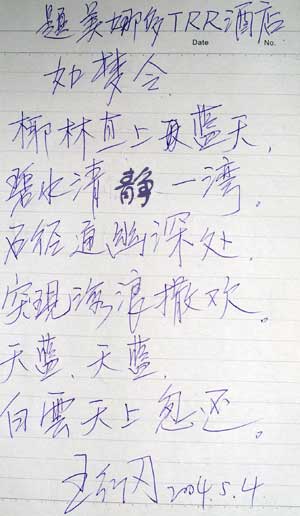 题美娜多TRR酒店
Date No.
如梦令
椰林直上再蓝天,
碧水清静一湾。
石径通幽深处,
实现海浪撒欢。
天蓝、天蓝,
白雲天上忽还。
2004.5.4